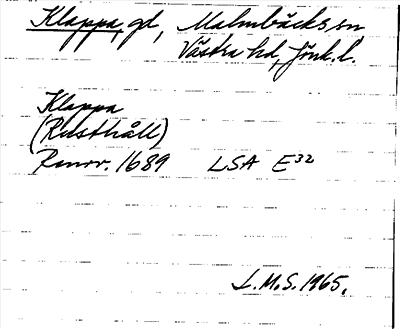 Klappa, gd, Malmbäcks sn
Västra hd, Jönk. l.
Klappa
(Rusthåll)
Renov. 1689 LSA E32
L.M.S. 1965.